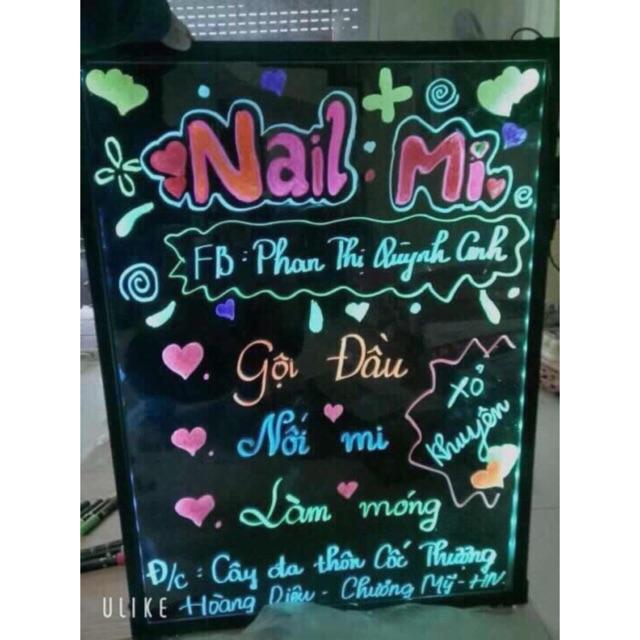 Nail Mi
FB: Phan Thị Quỳnh Anh
Gội Đầu
Nối mi
Làm móng
Xỏ
Khuyên
Đ/c: Cây đa thôn Cốc Thượng
Hoàng Diệu - Chương Mỹ - HN
ULIKE